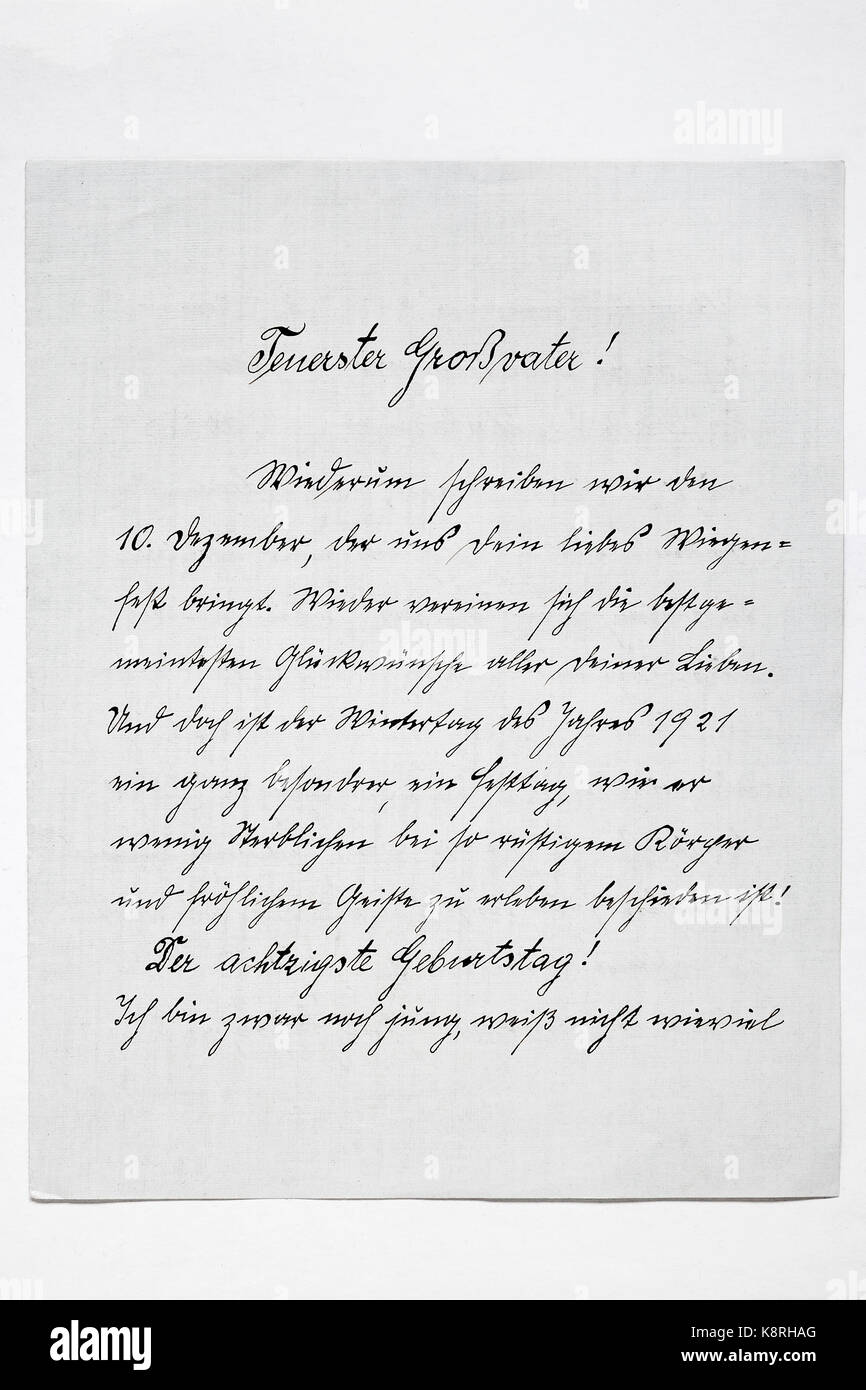 Teuerster Großvater!
Wiederum schreiben wir den
10. Dezember, der uns Dein liebes Wiegen=
fest bringt. Wieder vereinen sich die bestge=
meintesten Glückwünsche aller Deiner Lieben.
Und doch ist der Wintertag des Jahres 1921
ein ganz besondrer, ein Festtag, wie er
wenig Sterblichen bei so rüstigem Körper
und fröhlichem Geiste zu erleben beschieden ist!
Der achtzigste Geburtstag!
Ich bin zwar noch jung, weiß nicht wieviel
alamy
Image ID: K8RHAG
www.alamy.com